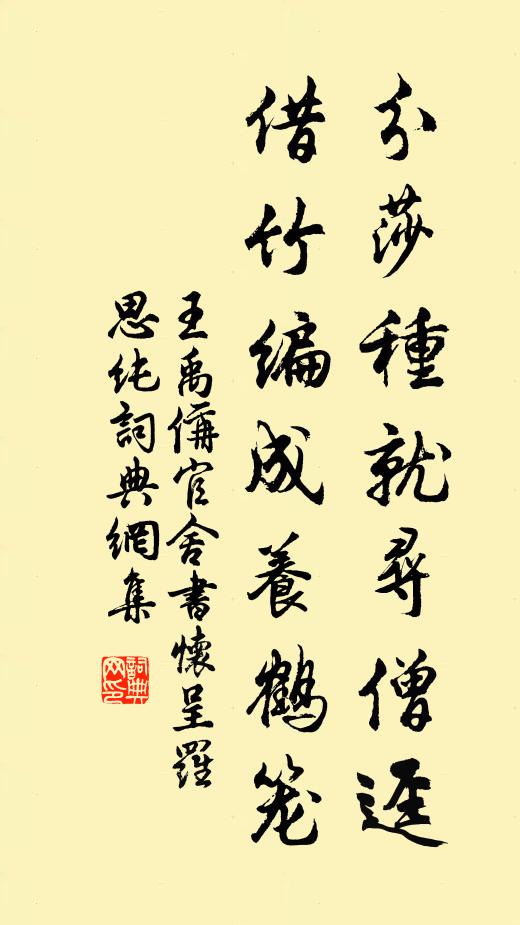 分莎種就尋僧逕
借竹編成養鶴笼
王禹偁官舍書懷呈羅
思純詞典網集
詞典网印